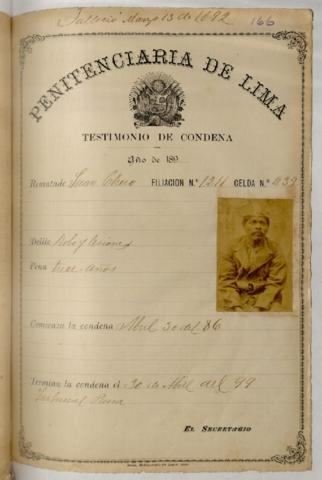 Falleció Marzo 13 de 1892
166
PENITENCIARIA DE LIMA
TESTIMONIO DE CONDENA
Año de 189
Rematado Juan FILIACION N.º 1211 CELDA N.º 139
Delito Robo y lesiones
Pena trece años
Comienza la condena Abril 30 del 86
Termina la condena el 30 de Abril del 99
Tribunal Piura
EL SECRETARIO